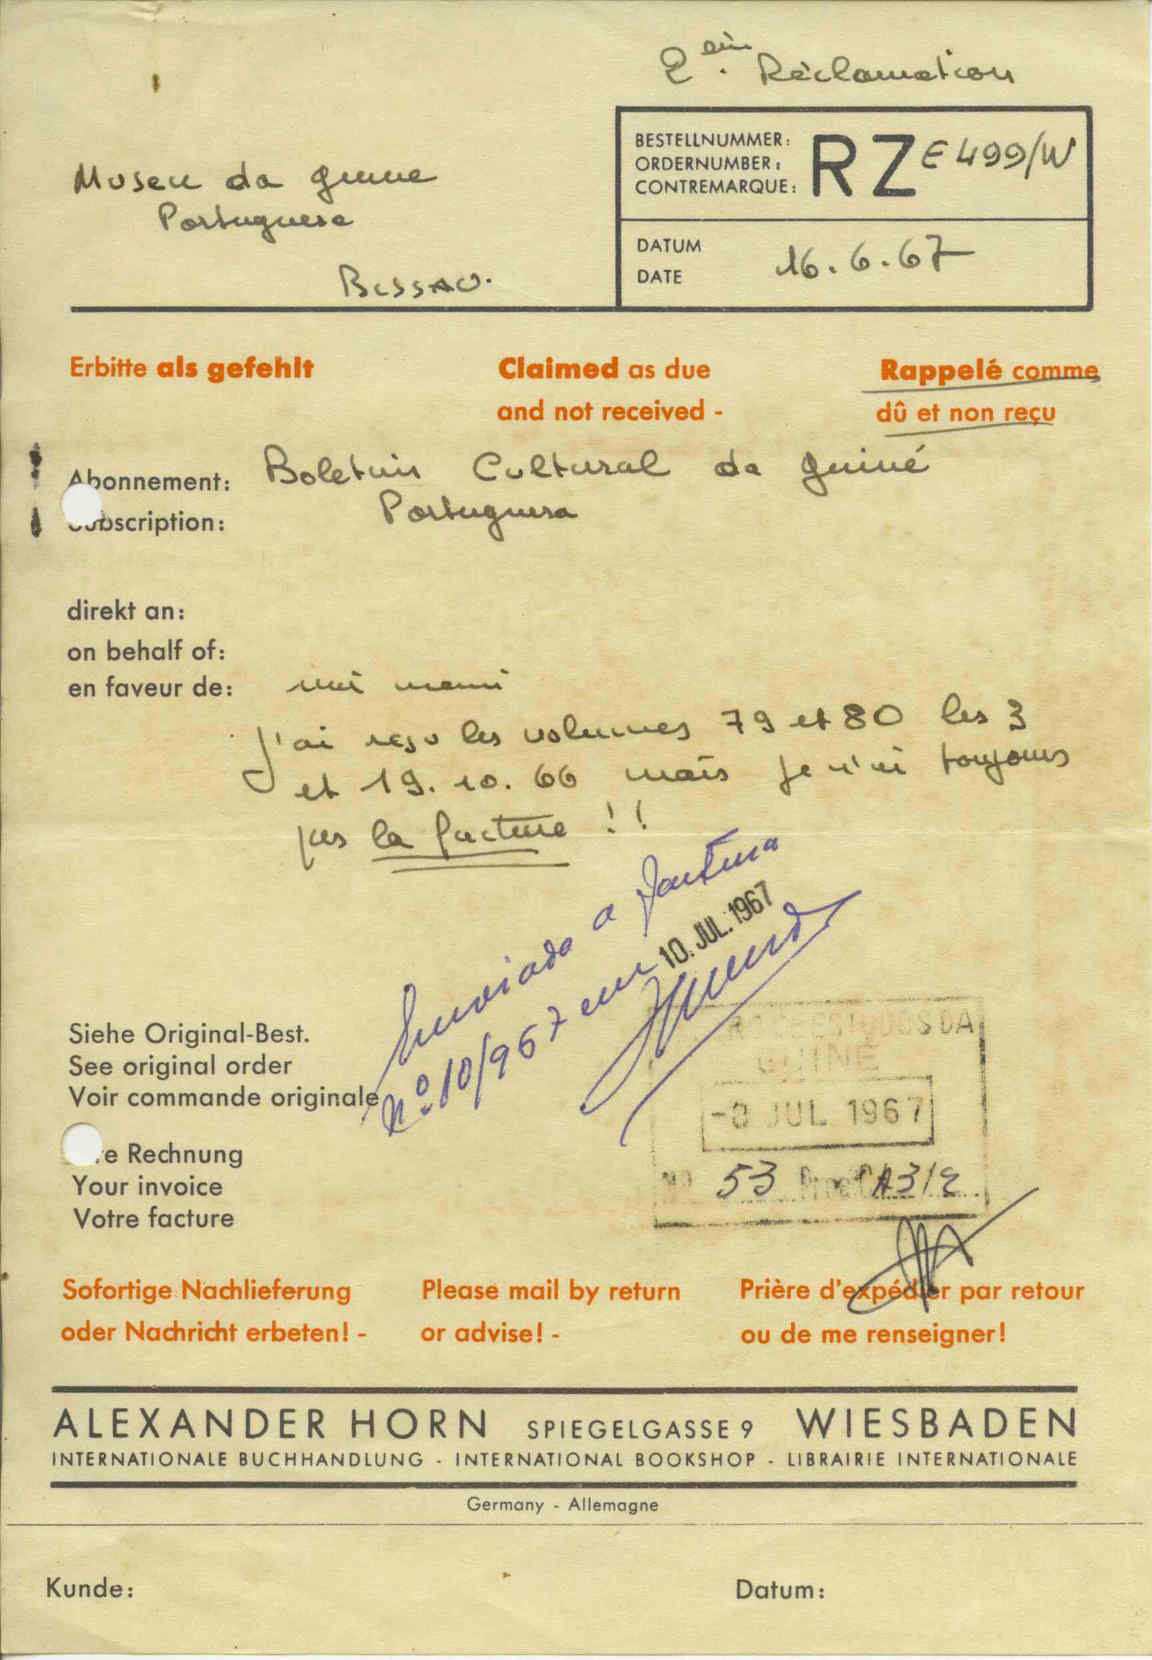 2. èm Réclamation
BESTELLNUMMER:
ORDERNUMBER:
CONTREMARQUE:
RZ E 499/W
Museu da Guine
Portuguesa
Bissau.
DATUM
DATE
16.6.67
Erbitte als gefehlt
Claimed as due
and not received -
Rappelé comme
dû et non reçu
Abonnement: Boletim Cultural da Guiné
Subscription: Portuguesa
direkt an:
on behalf of:
en faveur de:
J'ai reçu les volumes 79 et 80 les 3
et 19.10.66 mais je n'ai toujours
pas la facture !!
Enviada a factura
nº 10/967 em 10. JUL. 1967
Siehe Original-Best.
See original order
Voir commande originale
S DA
GUINÉ
JUL 1967
53 A3/2
e Rechnung
Your invoice
Votre facture
Sofortige Nachlieferung
oder Nachricht erbeten! -
Please mail by return
or advise! -
Prière d'expédier par retour
ou de me renseigner!
ALEXANDER HORN SPIEGELGASSE 9 WIESBADEN
INTERNATIONALE BUCHHANDLUNG - INTERNATIONAL BOOKSHOP - LIBRAIRIE INTERNATIONALE
Germany - Allemagne
Kunde:
Datum: